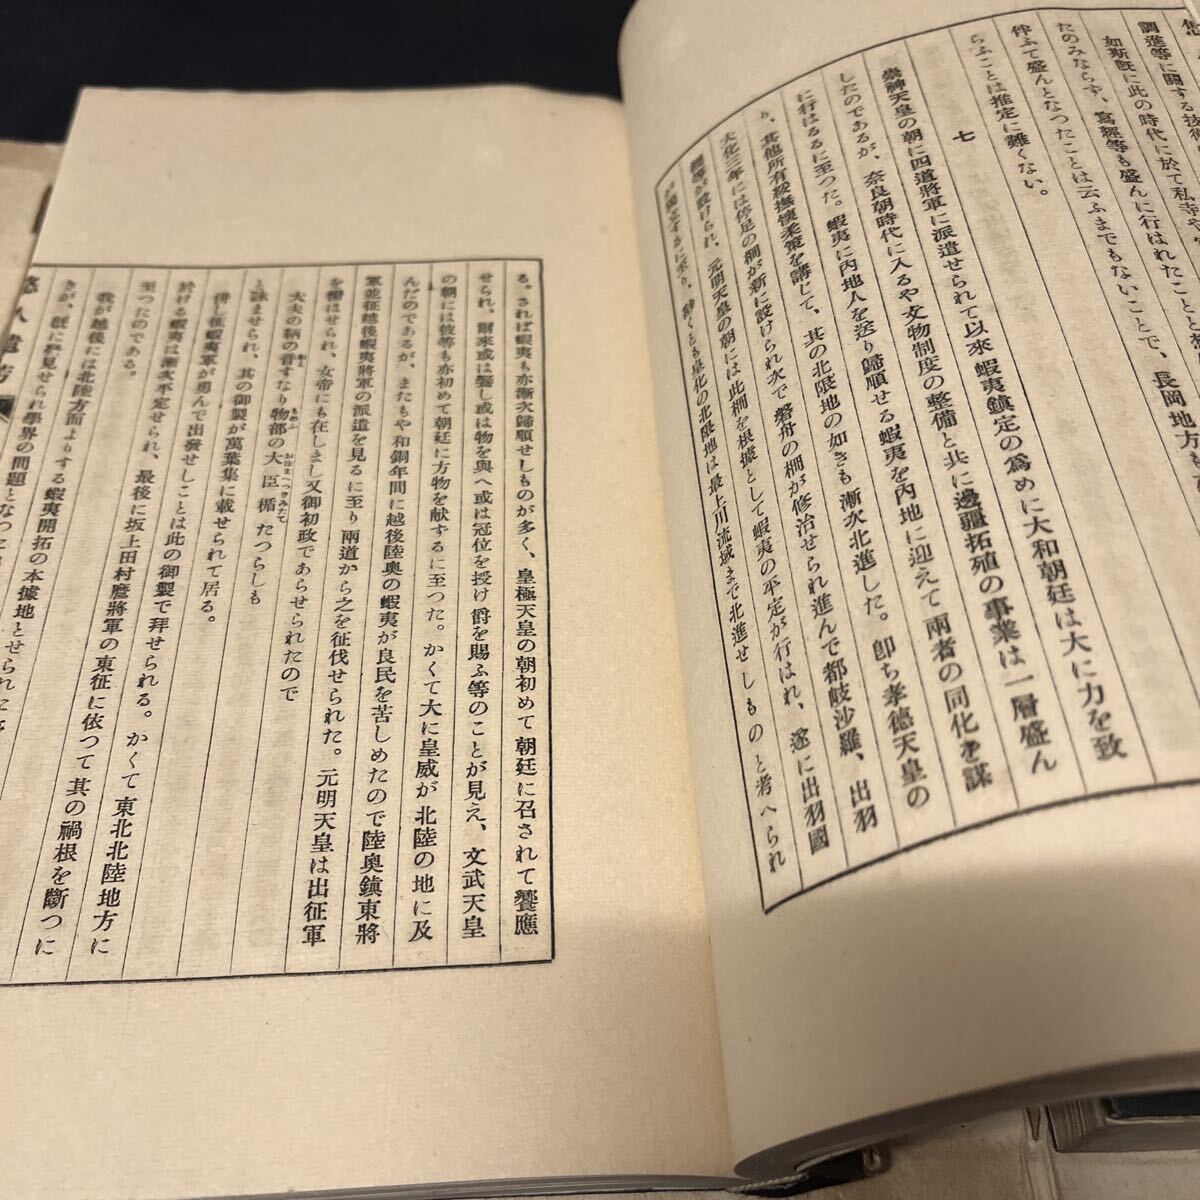 調進等に關する技術
如斯旣に此の時代に於て私寺や
たのみならず、寫經等も盛んに行はれたことと
伴ふて盛んとなつたことは云ふまでもないことで、長岡地方も
らふことは推定に難くない。
七
崇神天皇の朝に四道將軍に派遣せられて以來蝦夷鎭定の爲めに大和朝廷は大に力を致
したのであるが、奈良朝時代に入るや文物制度の整備と共に邊疆拓殖の事業は一層盛ん
に行はるるに至つた。蝦夷に內地人を送り歸順せる蝦夷を內地に迎えて兩者の同化を謀
り、其他所有綏撫懷柔策を講じて、其の北限地の如きも漸次北進した。卽ち孝德天皇の
大化三年には渟足の柵が新に設けられ次で磐舟の柵が修治せられ進んで都岐沙羅、出羽
柵等が設けられ、元明天皇の朝には此柵を根據として蝦夷の平定が行はれ、遂に出羽國
が獨立するに至り、少くとも皇化の北限地は最上川流域まで北進せしものと考へられ
る。されば蝦夷も亦漸次歸順せしものが多く、皇極天皇の朝初めて朝廷に召されて饗應
せられ、爾來或は饗し或は物を與へ或は冠位を授け爵を賜ふ等のことが見え、文武天皇
の朝には彼等も亦初めて朝廷に方物を献ずるに至つた。かくて大に皇威が北陸の地に及
んだのであるが、またもや和銅年間に越後陸奧の蝦夷が良民を苦しめたので陸奧鎭東將
軍並征越後蝦夷將軍の派遣を見るに至り兩道から之を征伐せられた。元明天皇は出征軍
を犒はせられ、女帝にも在しまし又御初政であらせられたので
大夫の鞆の音すなり物部の大臣楯たつらしも
と詠ませられ、其の御製が萬葉集に載せられて居る。
併し征蝦夷軍が勇んで出發せしことは此の御製で拜せられる。かくて東北北陸地方に
於ける蝦夷は漸次平定せられ、最後に坂上田村麿將軍の東征に依つて其の禍根を斷つに
至つたのである。
我が越後には北陸方面よりする蝦夷開拓の本據地とせられた
きが、旣に
見せられ學界の問題となつた